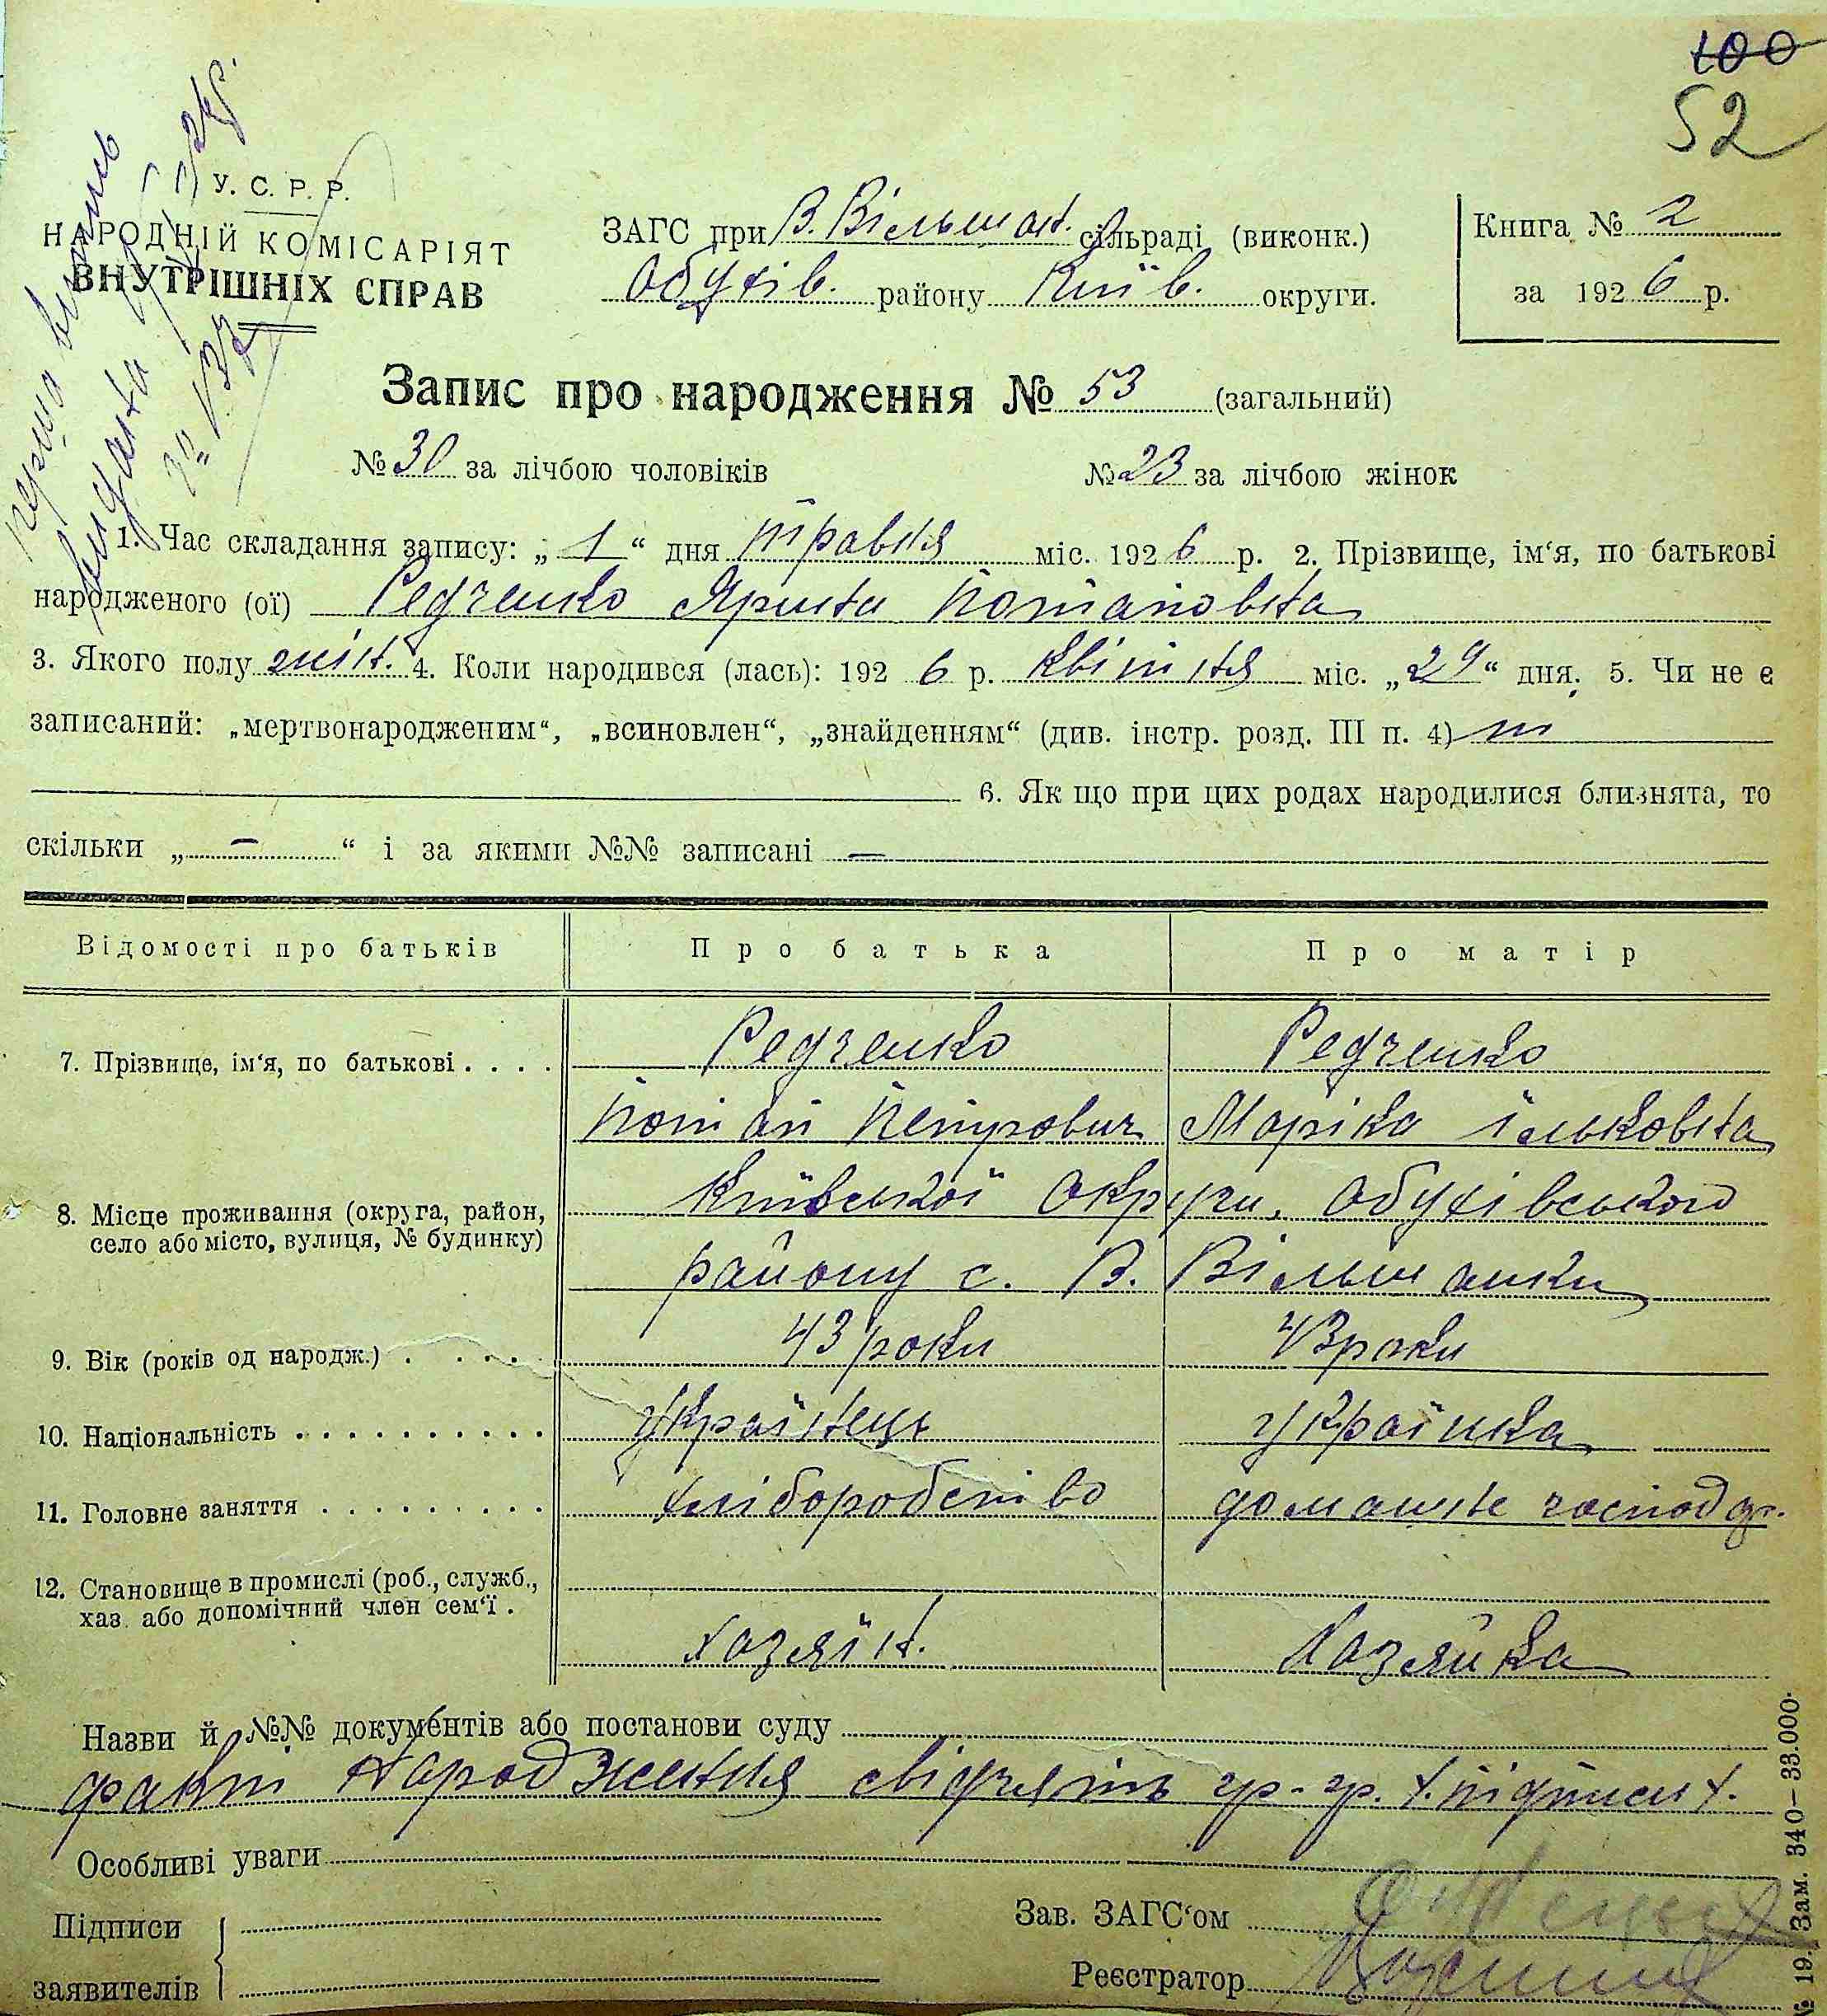 100
52
перша випись
видана
за № 137
У. С. Р. Р.
НАРОДНІЙ КОМІСАРІЯТ
ВНУТРІШНІХ СПРАВ
ЗАГС при В. Вільшан. сільраді (виконк.)
Обухів. району Київ. округи.
Книга № 2
за 1926 р.
Запис про народження № 53 (загальний)
№ 30 за лічбою чоловіків № 23 за лічбою жінок
1. Час складання запису: „1“ дня травня міс. 1926 р. 2. Прізвище, ім‘я, по батькові
народженого (ої) Редченко Ярина Потаповна
3. Якого полу жін. 4. Коли народився (лась): 1926 р. квітня міс. „29“ дня. 5. Чи не є
записаний: „мертвонародженим“, „всиновлен“, „знайденням“ (див. інстр. розд. III п. 4)
6. Як що при цих родах народилися близнята, то
скільки „ — “ і за якими №№ записані —
Відомості про батьків Про батька Про матір
7. Прізвище, ім‘я, по батькові . . . . Редченко Редченко
Потап Петрович Маріка Ільковна
8. Місце проживання (округа, район, Київської округи, Обухівського
село або місто, вулиця, № будинку)
району с. В. Вільшанки
9. Вік (років од народж.) . . . . . 43 роки 43 роки
10. Національність . . . . . . . . . . Українець Українка
11. Головне заняття . . . . . . . . . хліборобство домашнє господар.
12. Становище в промислі (роб., служб.,
хаз. або допомічний член сем‘ї .
Хазяїн. Хазяйка
Назви й №№ документів або постанови суду
факт народження свідчять гр-гр.
Особливі уваги
Підписи
заявителів
Зав. ЗАГС‘ом
Реєстратор
№ 19. Зам. 340–33.000.